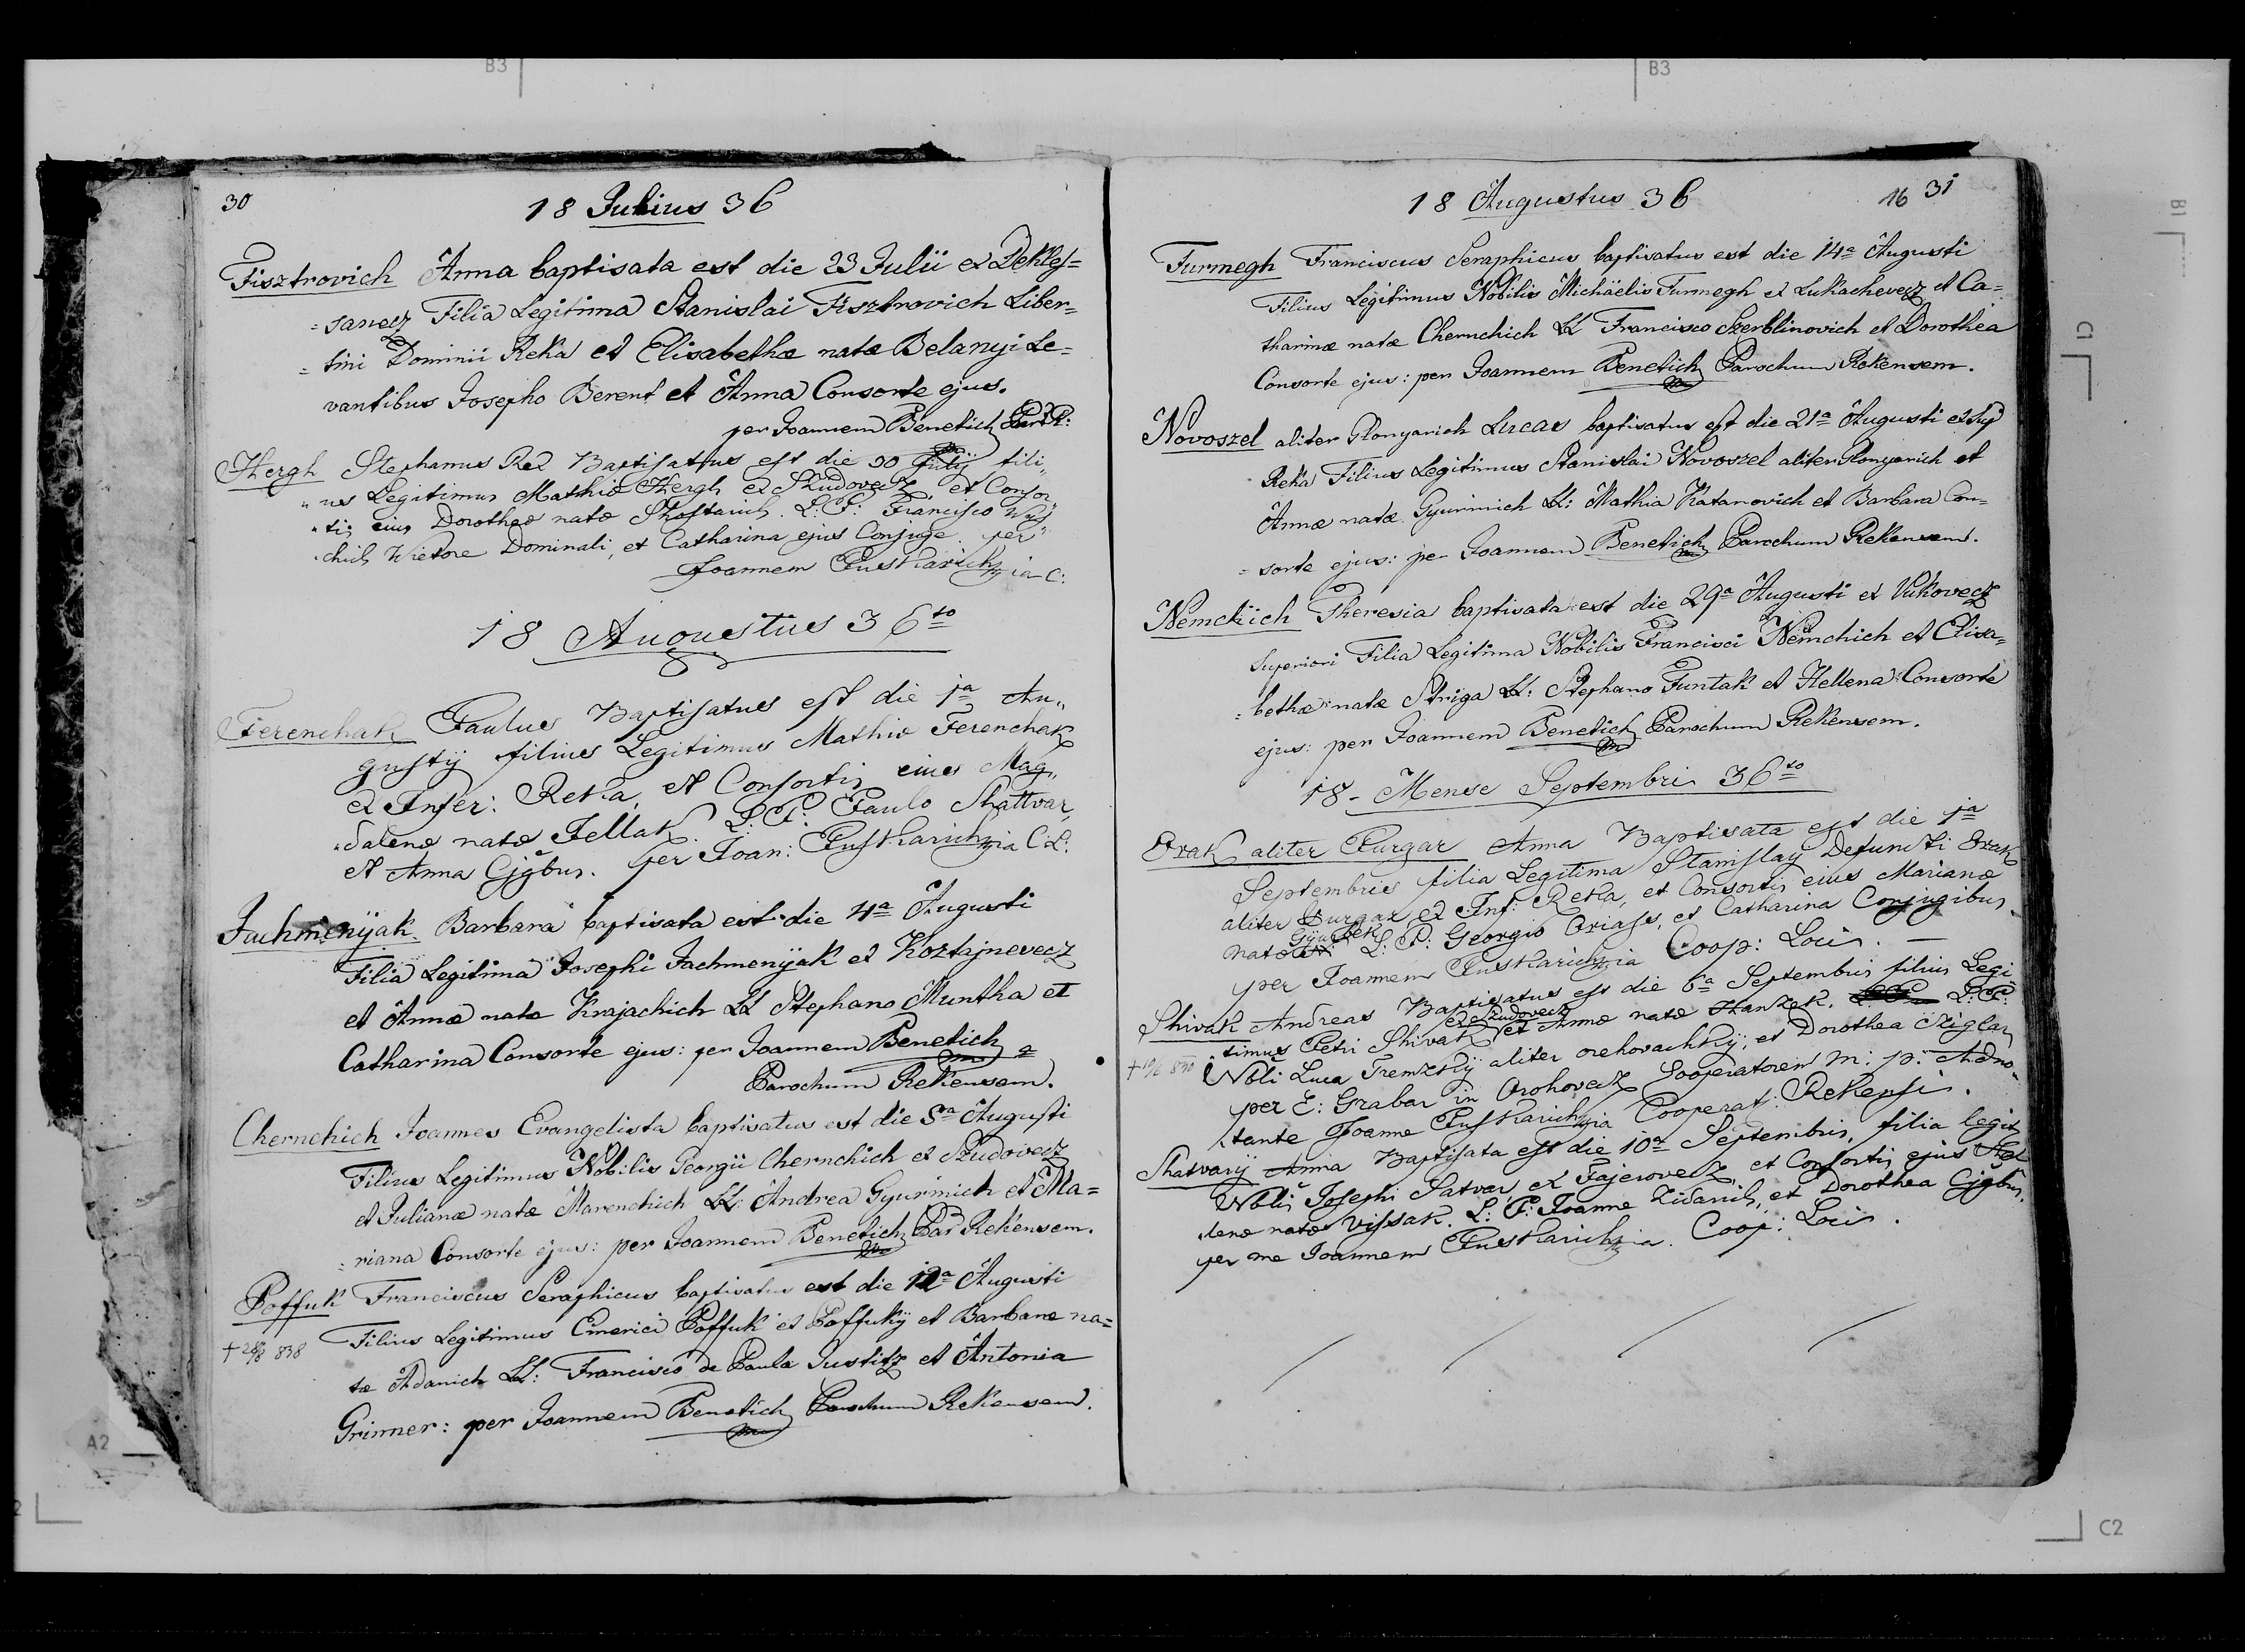 B3
B3
B1
C1
A2
C2
30
18 Julius 36
Fisztrovich Anna baptisata est die 23 Julii ex Deklej=
=sanecz Filia Legitima Stanislai Fisztrovich Liber=
=tini Dominii Reka et Elisabethæ natæ Belanyi Le=
vantibus Josepho Berent et Anna Consorte ejus.
per Joannem Benetich Par R:
Hergh Stephanus Rex Baptisatus est die 30 Julÿ fili„
„us Legitimus Mathiæ Hergh ex Sudovecz, et Consor„
„tis eius Dorotheæ natæ Shoftarich. L: P: Francisco
chich Wietore Dominali, et Catharina ejus Conjuge. per
Joannem Puskarich C:
18 Augustus 36to
Ferenchak Paulus Baptisatus est die 1a Au„
gustÿ filius Legitimus Mathiæ Ferenchak
ex Infer: Reka, et Consortis eius Mag„
„dalenæ natæ Jellak. L: P: Paulo Shattvar,
et Anna Cjgbus. per Joan: Puskarich C: L:
Jachmenÿak Barbara baptisata est die 4a Augusti
Filia Legitima Josephi Jachmenÿak ex Koztajnevecz
et Annæ natæ Krajachich LL Stephano Muntha et
Catharina Consorte ejus: per Joannem Benetich
Parochum Rekensem.
Chernchich Joannes Evangelista baptisatus est die 8a Augusti
Filius Legitimus Nobilis Georgii Chernchich ex Sudovecz
et Julianæ natæ Marenchich LL: Andrea Gyurinich et Ma=
=riana Consorte ejus: per Joannem Benetich Par Rekensem.
Poffuk Franciscus Seraphicus baptisatus est die 12a Augusti
† 28/8 838 Filius Legitimus Emerici Poffuk ex Poffukÿ et Barbaræ na=
tæ Adanich LL: Francisco de Paula Justitz et Antonia
Grinner: per Joannem Benetich Parochum Rekensem.
18 Augustus 36
16 31
Furmegh Franciscus Seraphicus baptisatus est die 14a Augusti
Filius Legitimus Nobilis Michäelis Furmegh ex Lukachevecz et Ca=
tharinæ natæ Chernchich LL Francisco Szerblinovich et Dorothea
Consorte ejus: per Joannem Benetich Parochum Rekensem.
Novoszel aliter Glonyarich Lucas baptisatus est die 21a Augusti ex Sup
Reka Filius Legitimus Stanislai Novoszel aliter Glonyarich et
Annæ natæ Gyurinich LL: Mathia Katanovich et Barbara Con=
=sorte ejus: per Joannem Benetich Parochum Rekensem.
Nemchich Theresia baptisata est die 29a Augusti ex Vukovecz
Superiori Filia Legitima Nobilis Francisci Nemchich et Elisa=
=bethæ natæ Striga LL: Stephano Funtak et Hellena Consorte
ejus: per Joannem Benetich Parochum Rekensem.
18 - Mense Septembri 36to
Orak aliter Purgar Anna Baptisata est die 1a
Septembris filia Legitima Stanislaÿ Defuncti Orak
aliter Purgar ex Inf: Reka, et Consortis eius Marianæ
natæ L: P: Georgio Oriass, et Catharina Conjugibus.
per Joannem Puskarich Coop: Loci. —
Shivak Andreas Baptisatus est die 6a Septembris filius Legi
ex Sudovecz
timus Petri Shivak et Annæ natæ Hanzek. L: P:
† 19/6 830 Nbli Luca Fremzkÿ aliter orehovachkÿ, et Dorothea Cziglar
per E: Grabar in Orohovecz Cooperatorem m: p: Adno„
tante Joanne Puskarich Cooperat: Rekensi.
Shatvarÿ Anna Baptisata est die 10a Septembris, filia legit
Nblis Josephi Satvar ex Fajerovecz, et Consortis ejus
lenæ natæ Vissak. L: P: Joanne Zidarich, et Dorothea Cjgbus.
per me Joannem Puskarich. Coop: Loci.